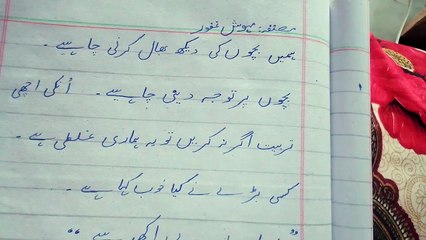 مصنفہ: مہوش غفور
ہمیں بچوں کی دیکھ بھال کرنی چاہیے۔
بچوں پر توجہ دینی چاہیے۔ اُنکی اچھی
تربیت اگر نہ کریں تو یہ ہماری غلطی ہے۔
کسی بڑے نے کیا خوب کہا ہے۔